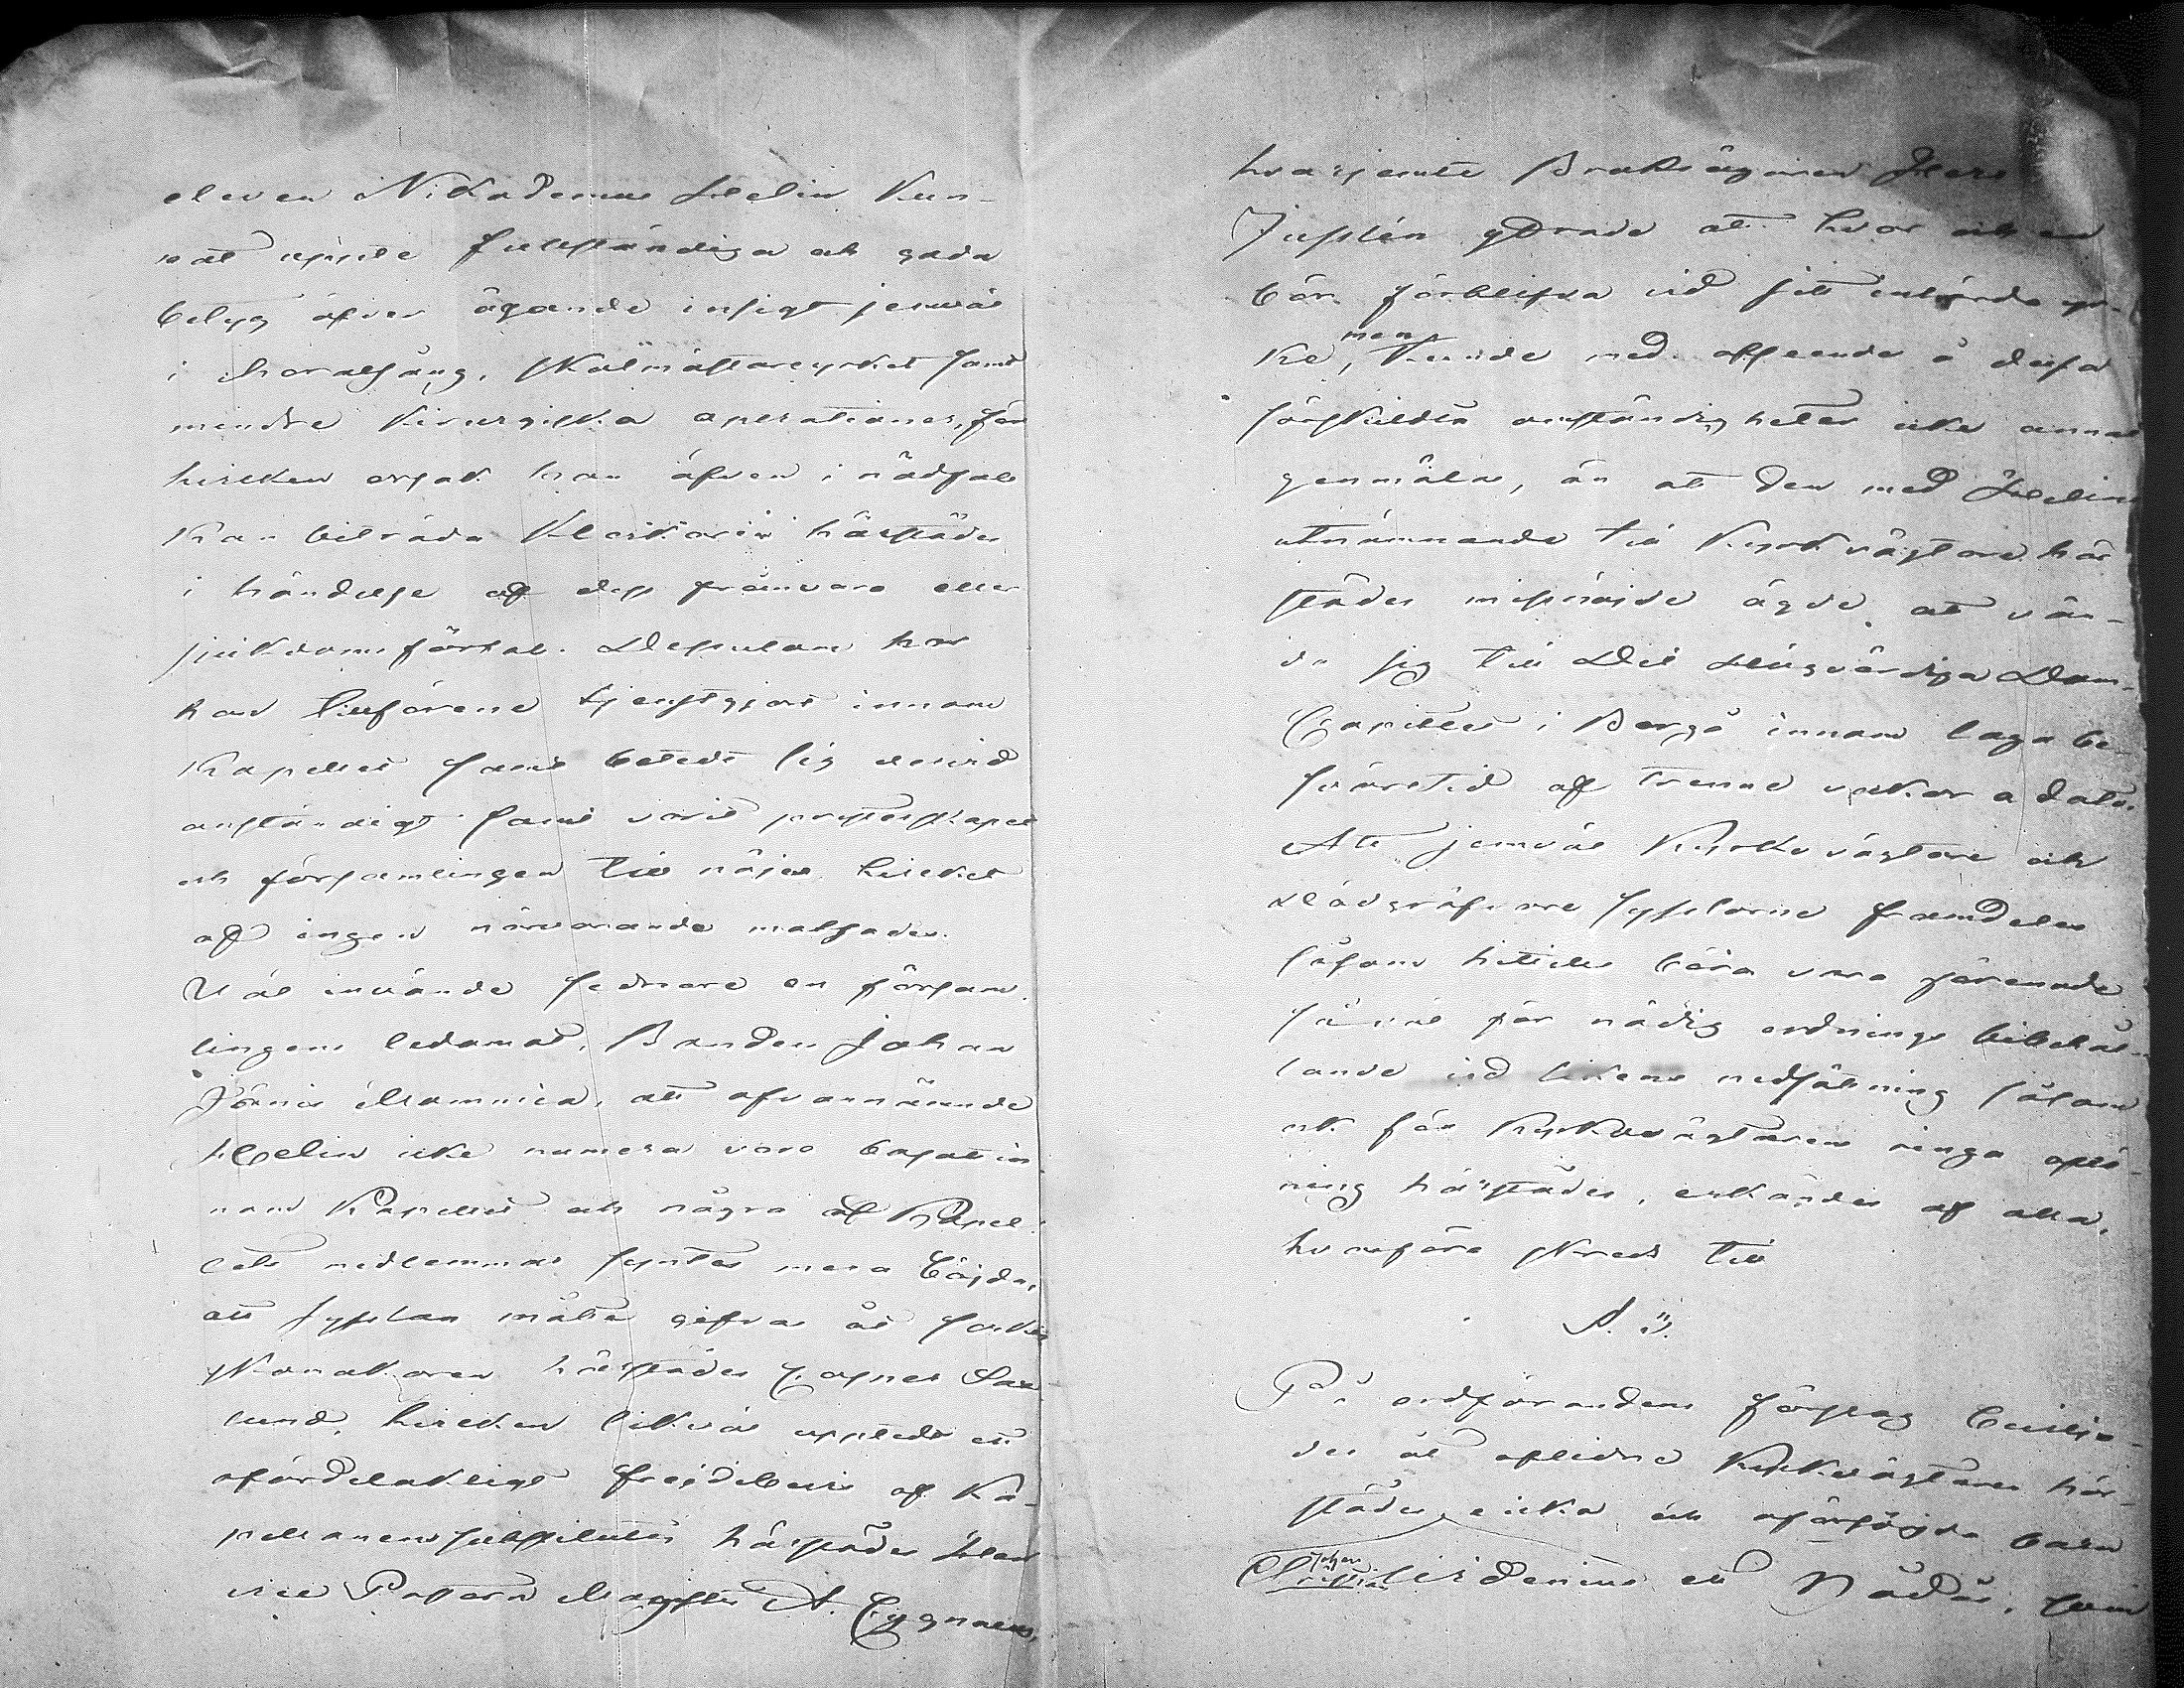 eleven Nikodemus Helin kun-
nat uppte fullständiga och goda
betyg öfver ägande insigt jemväl
i Choralsång, skolmästareyrket samt
mindre kirurgiska operationer, för
hvilken orsak han äfven i nödfall
kan biträda Klockarin härstädes
i händelse af dess frånvaro eller
sjukdomsförfal. Dessutom har
han tillförene tjenstgjort innom
Kapellet samt betedt sig dervid
anständigt samt varit presterskapet
och församlingen till nöjes hvilket
af ingen närvarande motsades.
Väl invände sednare en försam-
lingens ledamot, Bonden Johan
Jöns Mammila, att ofvannämnde
Helin icke numera vore bosatt in-
nom Kapellet och några af Kapel-
lets medlemmar syntes mera böjda,
att sysslan måtte gifvas åt socken
skomakaren härstädes Lund,
hvilken likväl uppteddt ett
ofördelaktigt frejdebevis af Ka-
pellanens substitut härstädes Herr
vice Pastorn Magister A. Cygnaeus,
hvarjemte Bruksägaren Herr
Juslén yttrade att hvar och en
bör förblifva vid sitt inlärda yr-
ke, men kunde med afseende å dessa
särskildta omständigheter icke annat
genmäla, än att den med Helins
utnämnande till Kyrkvägtare här
städes missnöjde ägde att vän-
da sig till Det Högvördiga Dom-
Capitlet i Borgå innom laga be-
svärstid af trenne veckor a dato.
Att jemväl Kyrkovägtare och
dödgräfvare sysslorne framdeles
såsom hittills böra vara förenade
såväl för nödig ordnings bibehål-
lande vid likens nedsättning såsom
ock för Kyrkovägtarens ringa aflö-
ning härstädes, erkändes af alla,
hvarföre skreds till
§. 3.
På ordförandens förslag bevilja-
des åt aflidne Kyrkovägtaren här-
städes enka och oförsörjda barn
Johan Lidenius ett Nådår, som